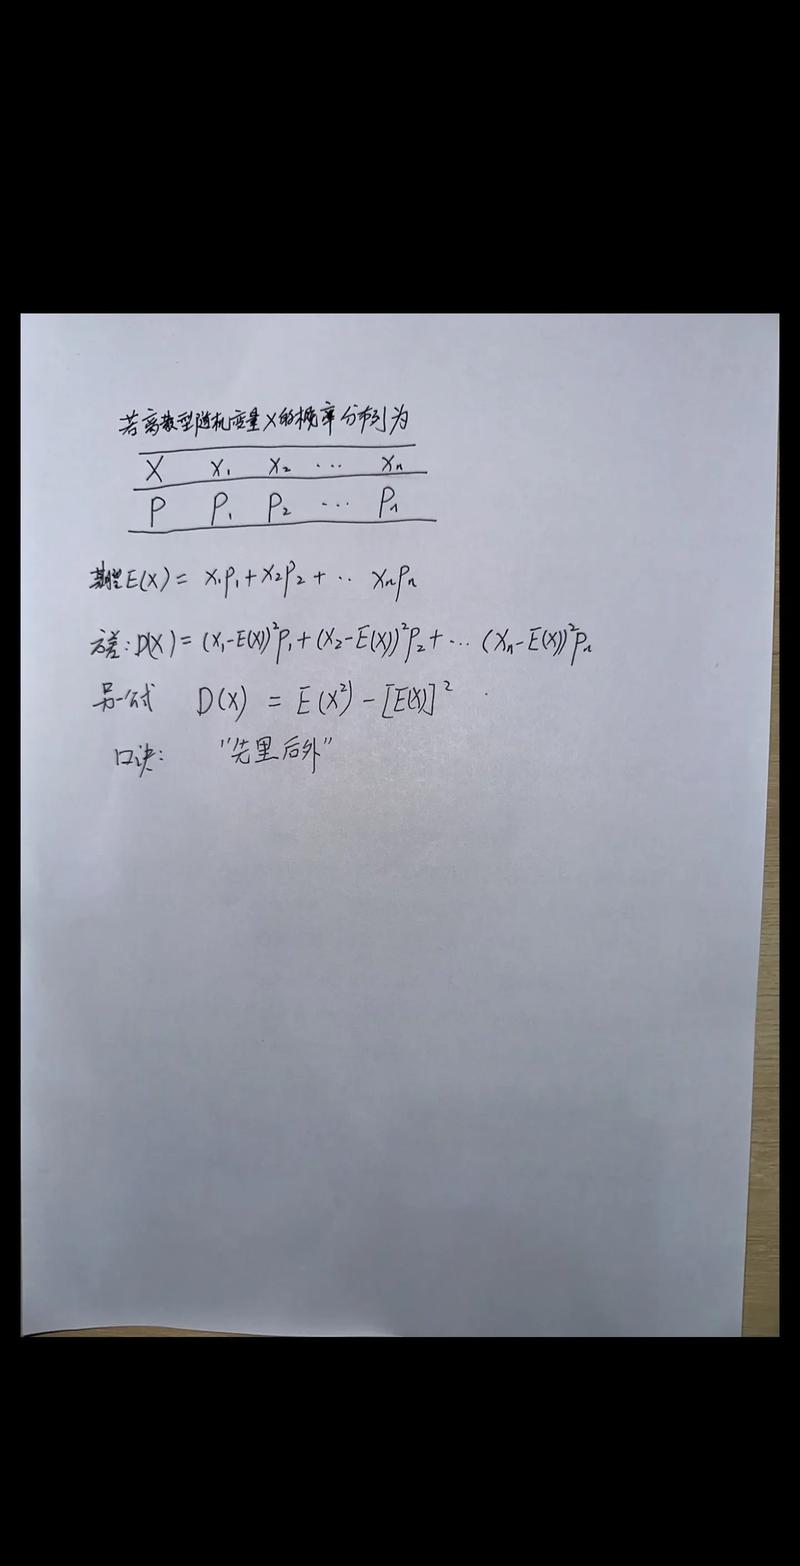 若离散型随机变量X的概率分布列为
X x₁ x₂ ··· xₙ
P P₁ P₂ ··· Pₙ
期望E(X) = x₁p₁+x₂p₂+ ·· xₙpₙ
方差: D(X) = (x₁-E(X))²p₁+(x₂-E(X))²p₂+ ··· (xₙ-E(X))²pₙ
另一公式 D(X) = E(X²)-[E(X)]²
口诀: "先里后外"